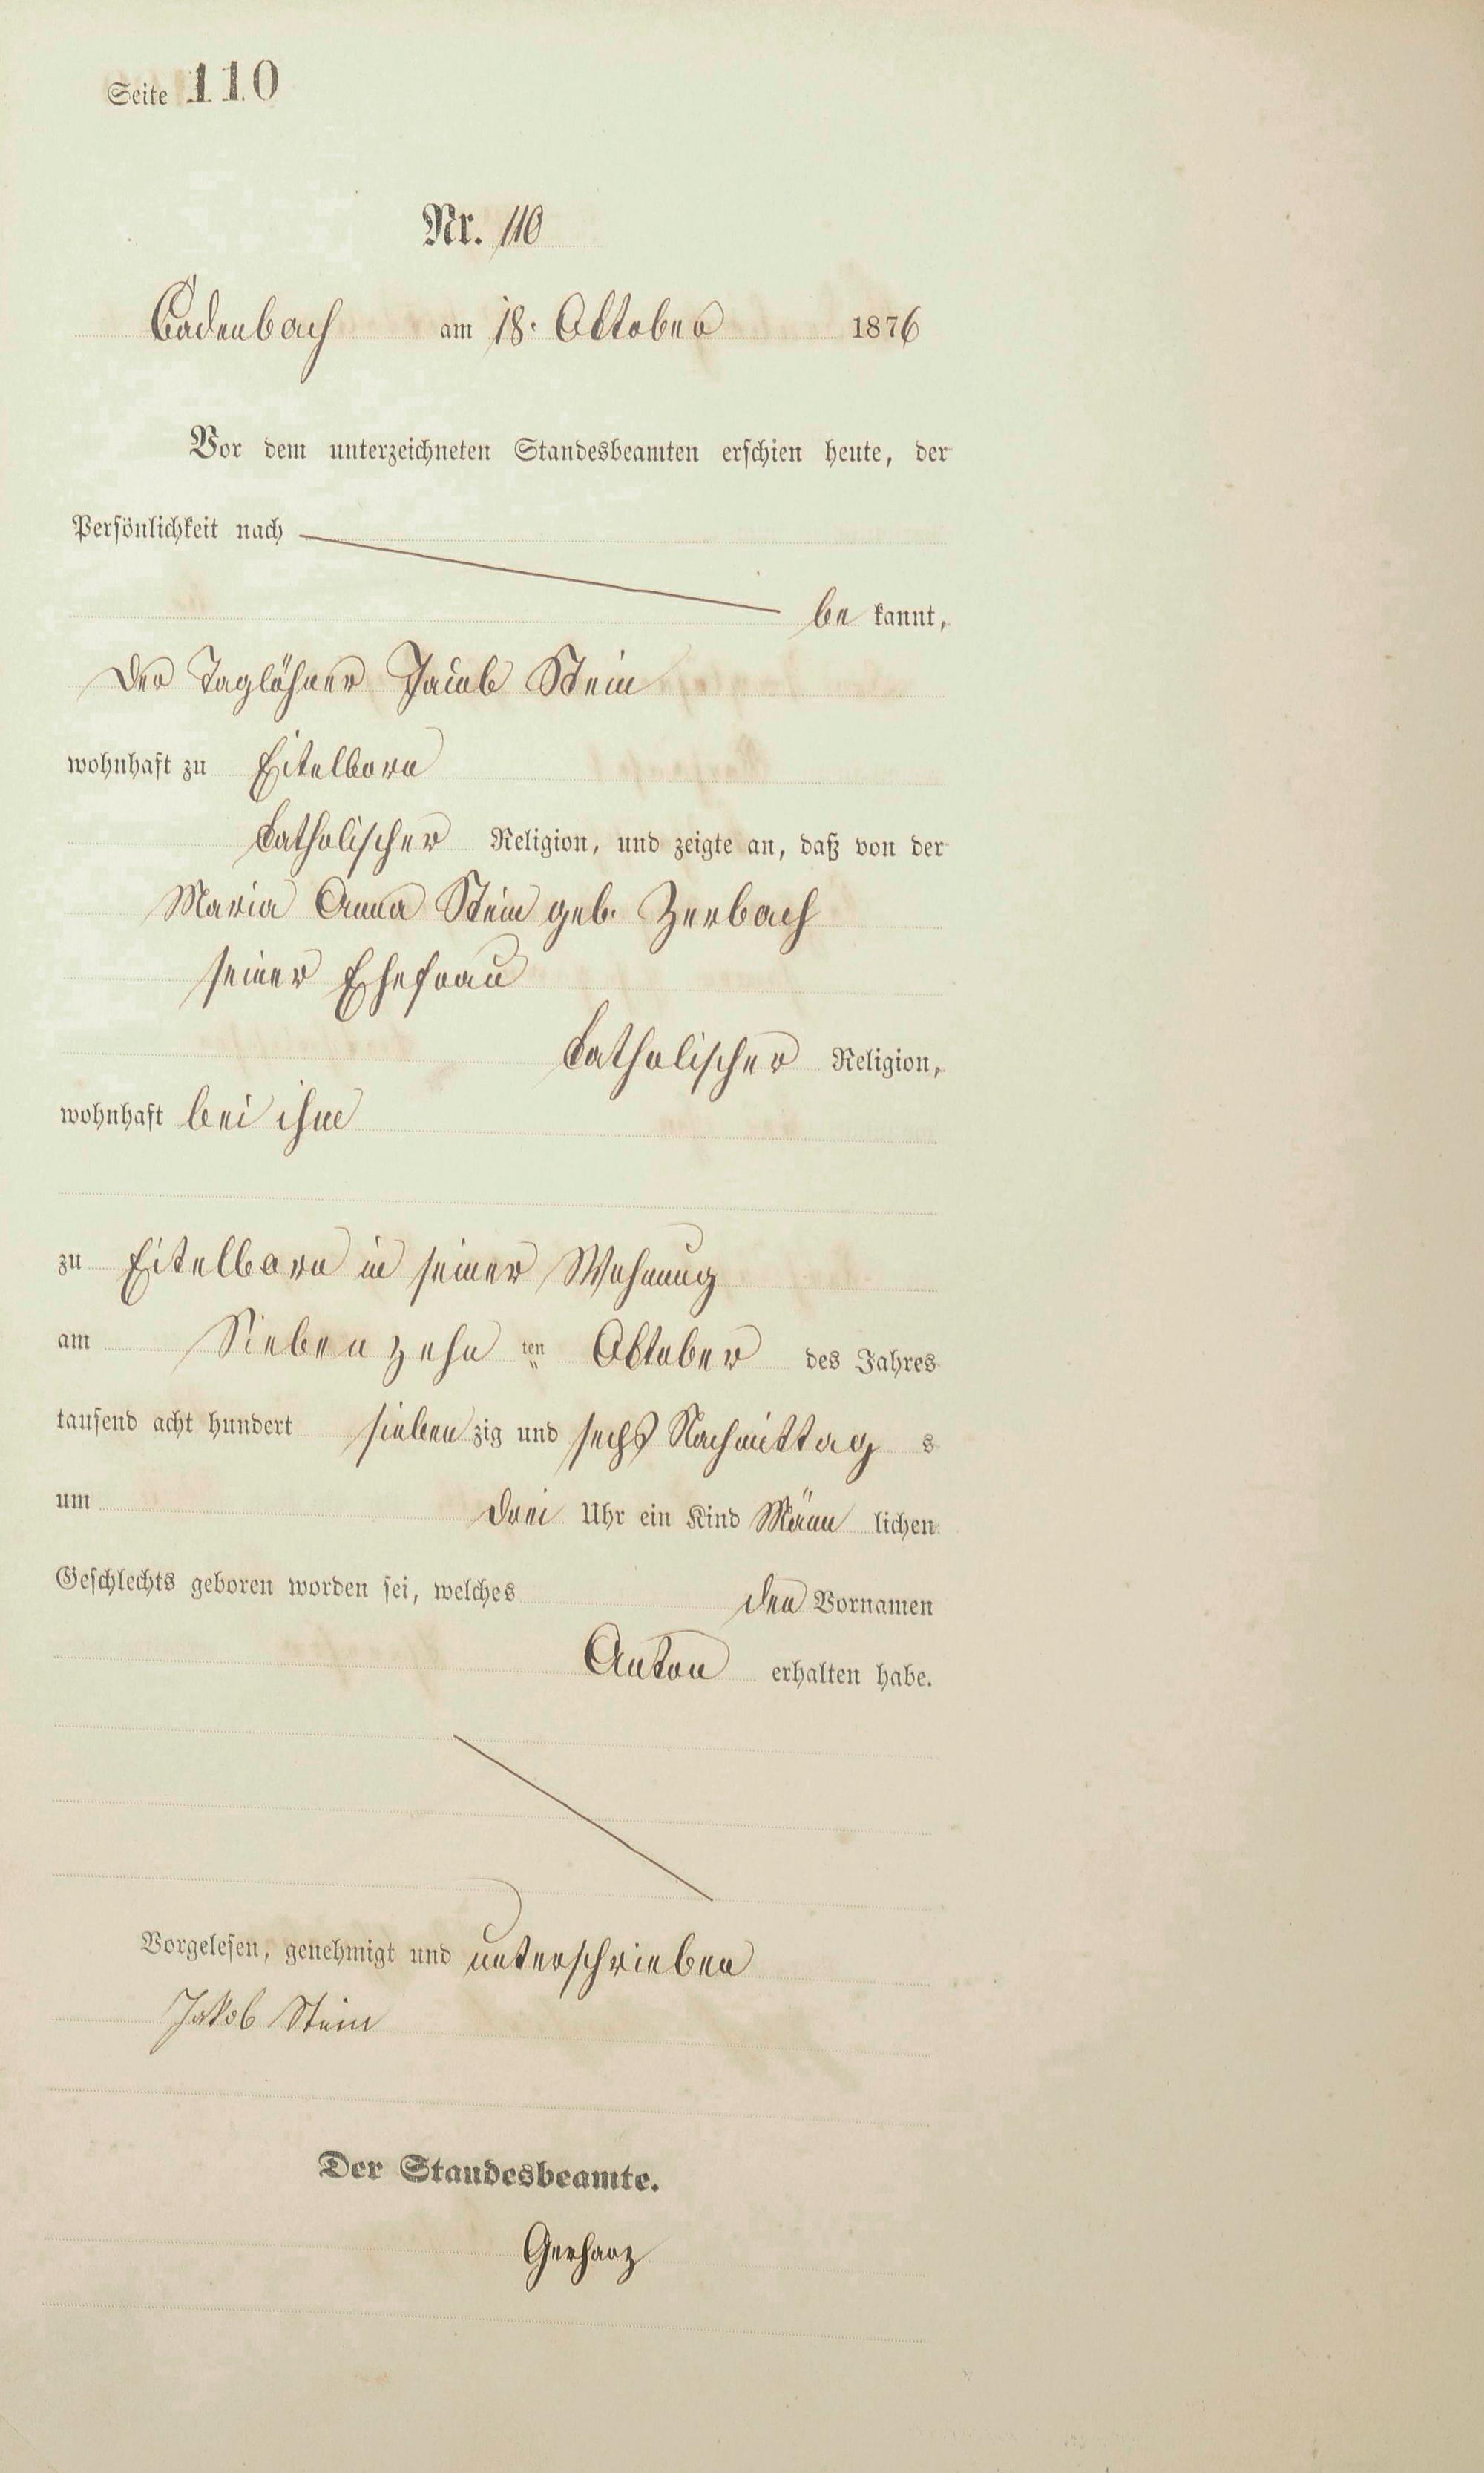 Seite 110
Nr. 110
Cadenbach am 18. Oktober 1876
Vor dem unterzeichneten Standesbeamten erschien heute, der
Persönlichkeit nach
be kannt,
der Taglöhner Jacob Stein
wohnhaft zu Eitelborn
katholischer Religion, und zeigte an, daß von der
Maria Anna Stein geb. Zerbach
seiner Ehefrau
katholischer Religion,
wohnhaft bei ihm
zu Eitelborn in seiner Wohnung
am Sieben zehn ten Oktober des Jahres
tausend acht hundert sieben zig und sechs Nachmittag s
um drei Uhr ein Kind Männ lichen
Geschlechts geboren worden sei, welches den Vornamen
Anton erhalten habe.
Vorgelesen, genehmigt und unterschrieben
Jakob Stein
Der Standesbeamte.
Gerharz